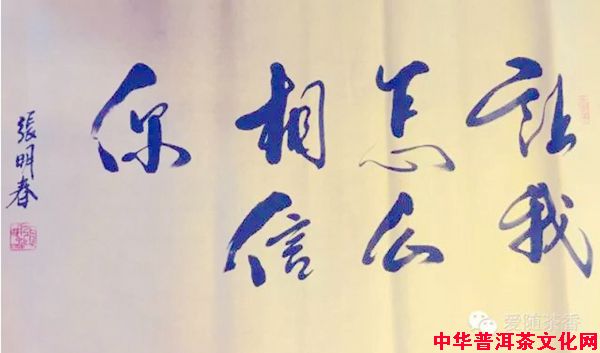 让我
怎么
相信
你
張明春
爱随茶香
中华普洱茶文化网